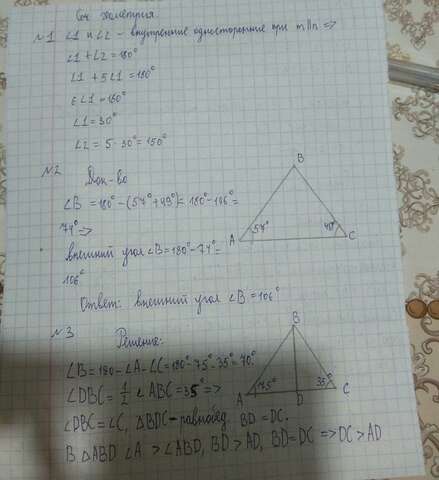 Сч геометрия
№1 ∠1 и ∠2 - внутренние односторонние при m||n =>
∠1 + ∠2 = 180°
∠1 + 5∠1 = 180°
6∠1 = 180°
∠1 = 30°
∠2 = 5 · 30° = 150°
№2 Док-во
∠B = 180° - (57° + 49°) = 180° - 106° =
74° =>
внешний угол ∠B = 180° - 74° =
106°
Ответ: внешний угол ∠B = 106°
B
A 57° 49° C
№3 Решение:
∠B = 180 - ∠A - ∠C = 180° - 75° - 35° = 70°.
∠DBC = 1/2 ∠ABC = 35° =>
∠DBC = ∠C, △BDC - равнобед. BD = DC.
В △ABD ∠A > ∠ABD, BD > AD, BD = DC => DC > AD
B
A 75° D 35° C